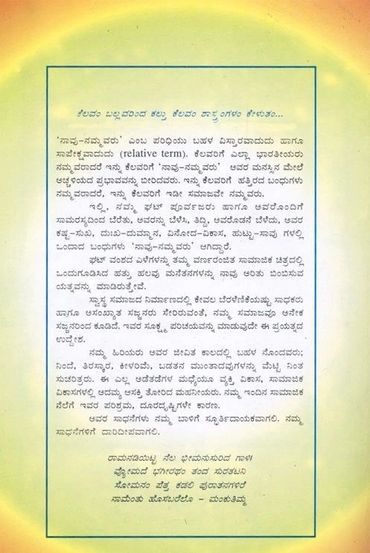 ಕೆಲವಂ ಬಲ್ಲವರಿಂದ ಕಲ್ತು ಕೆಲವಂ ಶಾಸ್ತ್ರಂಗಳಂ ಕೇಳುತಂ...
'ನಾವು-ನಮ್ಮವರು' ಎಂಬ ಪರಿಧಿಯು ಬಹಳ ವಿಸ್ತಾರವಾದುದು ಹಾಗೂ
ಸಾಪೇಕ್ಷವಾದುದು (relative term). ಕೆಲವರಿಗೆ ಎಲ್ಲಾ ಭಾರತೀಯರು
ನಮ್ಮವರಾದರೆ ಇನ್ನು ಕೆಲವರಿಗೆ 'ನಾವು-ನಮ್ಮವರು' ಅವರ ಮನಸ್ಸಿನ ಮೇಲೆ
ಅಚ್ಚಳಿಯದ ಪ್ರಭಾವವನ್ನು ಬೀರಿದವರು. ಇನ್ನು ಕೆಲವರಿಗೆ ಹತ್ತಿರದ ಬಂಧುಗಳು
ನಮ್ಮವರಾದರೆ, ಇನ್ನು ಕೆಲವರಿಗೆ ಇಡೀ ಸಮಾಜವೇ ನಮ್ಮವರು.
ಇಲ್ಲಿ, ನಮ್ಮ ಘಟ್ ಪೂರ್ವಜರು ಹಾಗೂ ಅವರೊಂದಿಗೆ
ಸಾಮರಸ್ಯದಿಂದ ಬೆರೆತು, ಅವರನ್ನು ಬೆಳೆಸಿ, ತಿದ್ದಿ, ಅವರೊಡನೆ ಬೆಳೆದು, ಅವರ
ಕಷ್ಟ-ಸುಖ, ದುಃಖ-ದುಮ್ಮಾನ, ವಿನೋದ-ವಿಕಾಸ, ಹುಟ್ಟು-ಸಾವು ಗಳಲ್ಲಿ
ಒಂದಾದ ಬಂಧುಗಳು 'ನಾವು-ನಮ್ಮವರು' ಆಗಿದ್ದಾರೆ.
ಘಟ್ ವಂಶದ ಎಳೆಗಳನ್ನು ತಮ್ಮ ವರ್ಣರಂಜಿತ ಸಾಮಾಜಿಕ ಚಿತ್ರದಲ್ಲಿ
ಒಂದುಗೂಡಿಸಿದ ಹತ್ತು ಹಲವು ಮನೆತನಗಳನ್ನು ನಾವು ಅರಿತು ಬಿಂಬಿಸುವ
ಯತ್ನವನ್ನು ಮಾಡಿರುತ್ತೇವೆ.
ಸ್ವಾಸ್ಥ್ಯ ಸಮಾಜದ ನಿರ್ಮಾಣದಲ್ಲಿ ಕೇವಲ ಬೆರಳೆಣಿಕೆಯಷ್ಟು ಸಾಧಕರು
ಹಾಗೂ ಅಸಂಖ್ಯಾತ ಸಜ್ಜನರು ಸೇರಿರುವಂತೆ, ನಮ್ಮ ಸಮಾಜವೂ ಅನೇಕ
ಸಜ್ಜನರಿಂದ ಕೂಡಿದೆ. ಇವರ ಸೂಕ್ಷ್ಮ ಪರಿಚಯವನ್ನು ಮಾಡುವುದೇ ಈ ಪ್ರಯತ್ನದ
ಉದ್ದೇಶ.
ನಮ್ಮ ಹಿರಿಯರು ಅವರ ಜೀವಿತ ಕಾಲದಲ್ಲಿ ಬಹಳ ನೊಂದವರು;
ನಿಂದೆ, ತಿರಸ್ಕಾರ, ಕೀಳರಿಮೆ, ಬಡತನ ಮುಂತಾದವುಗಳನ್ನು ಮೆಟ್ಟಿ ನಿಂತ
ಸುಚರಿತ್ರರು. ಈ ಎಲ್ಲಾ ಅಡೆತಡೆಗಳ ಮಧ್ಯೆಯೂ ವ್ಯಕ್ತಿ ವಿಕಾಸ, ಸಾಮಾಜಿಕ
ವಿಕಾಸಗಳಲ್ಲಿ ಅದಮ್ಯ ಆಸಕ್ತಿ ತೋರಿದ ಮಹನೀಯರು. ನಮ್ಮ ಇಂದಿನ ಸಾಮಾಜಿಕ
ನೆಲೆಗೆ ಇವರ ಪರಿಶ್ರಮ, ದೂರದೃಷ್ಟಿಗಳೇ ಕಾರಣ.
ಅವರ ಸಾಧನೆಗಳು ನಮ್ಮ ಬಾಳಿಗೆ ಸ್ಫೂರ್ತಿದಾಯಕವಾಗಲಿ. ನಮ್ಮ
ಸಾಧನೆಗಳಿಗೆ ದಾರಿದೀಪವಾಗಲಿ.
ರಾಮನಡಿಯಿಟ್ಟ ನೆಲ ಭೀಮನುಸುರಿದ ಗಾಳಿ
ವ್ಯೋಮದೆ ಭಗೀರಥಂ ತಂದ ಸುರತಟಿನಿ
ಸೋಮನಂ ಪೆತ್ತ ಕಡಲಿ ಪುರಾತನಗಳಿರೆ
ನಾಮೆಂತು ಹೊಸಬರೆಲೊ - ಮಂಕುತಿಮ್ಮ